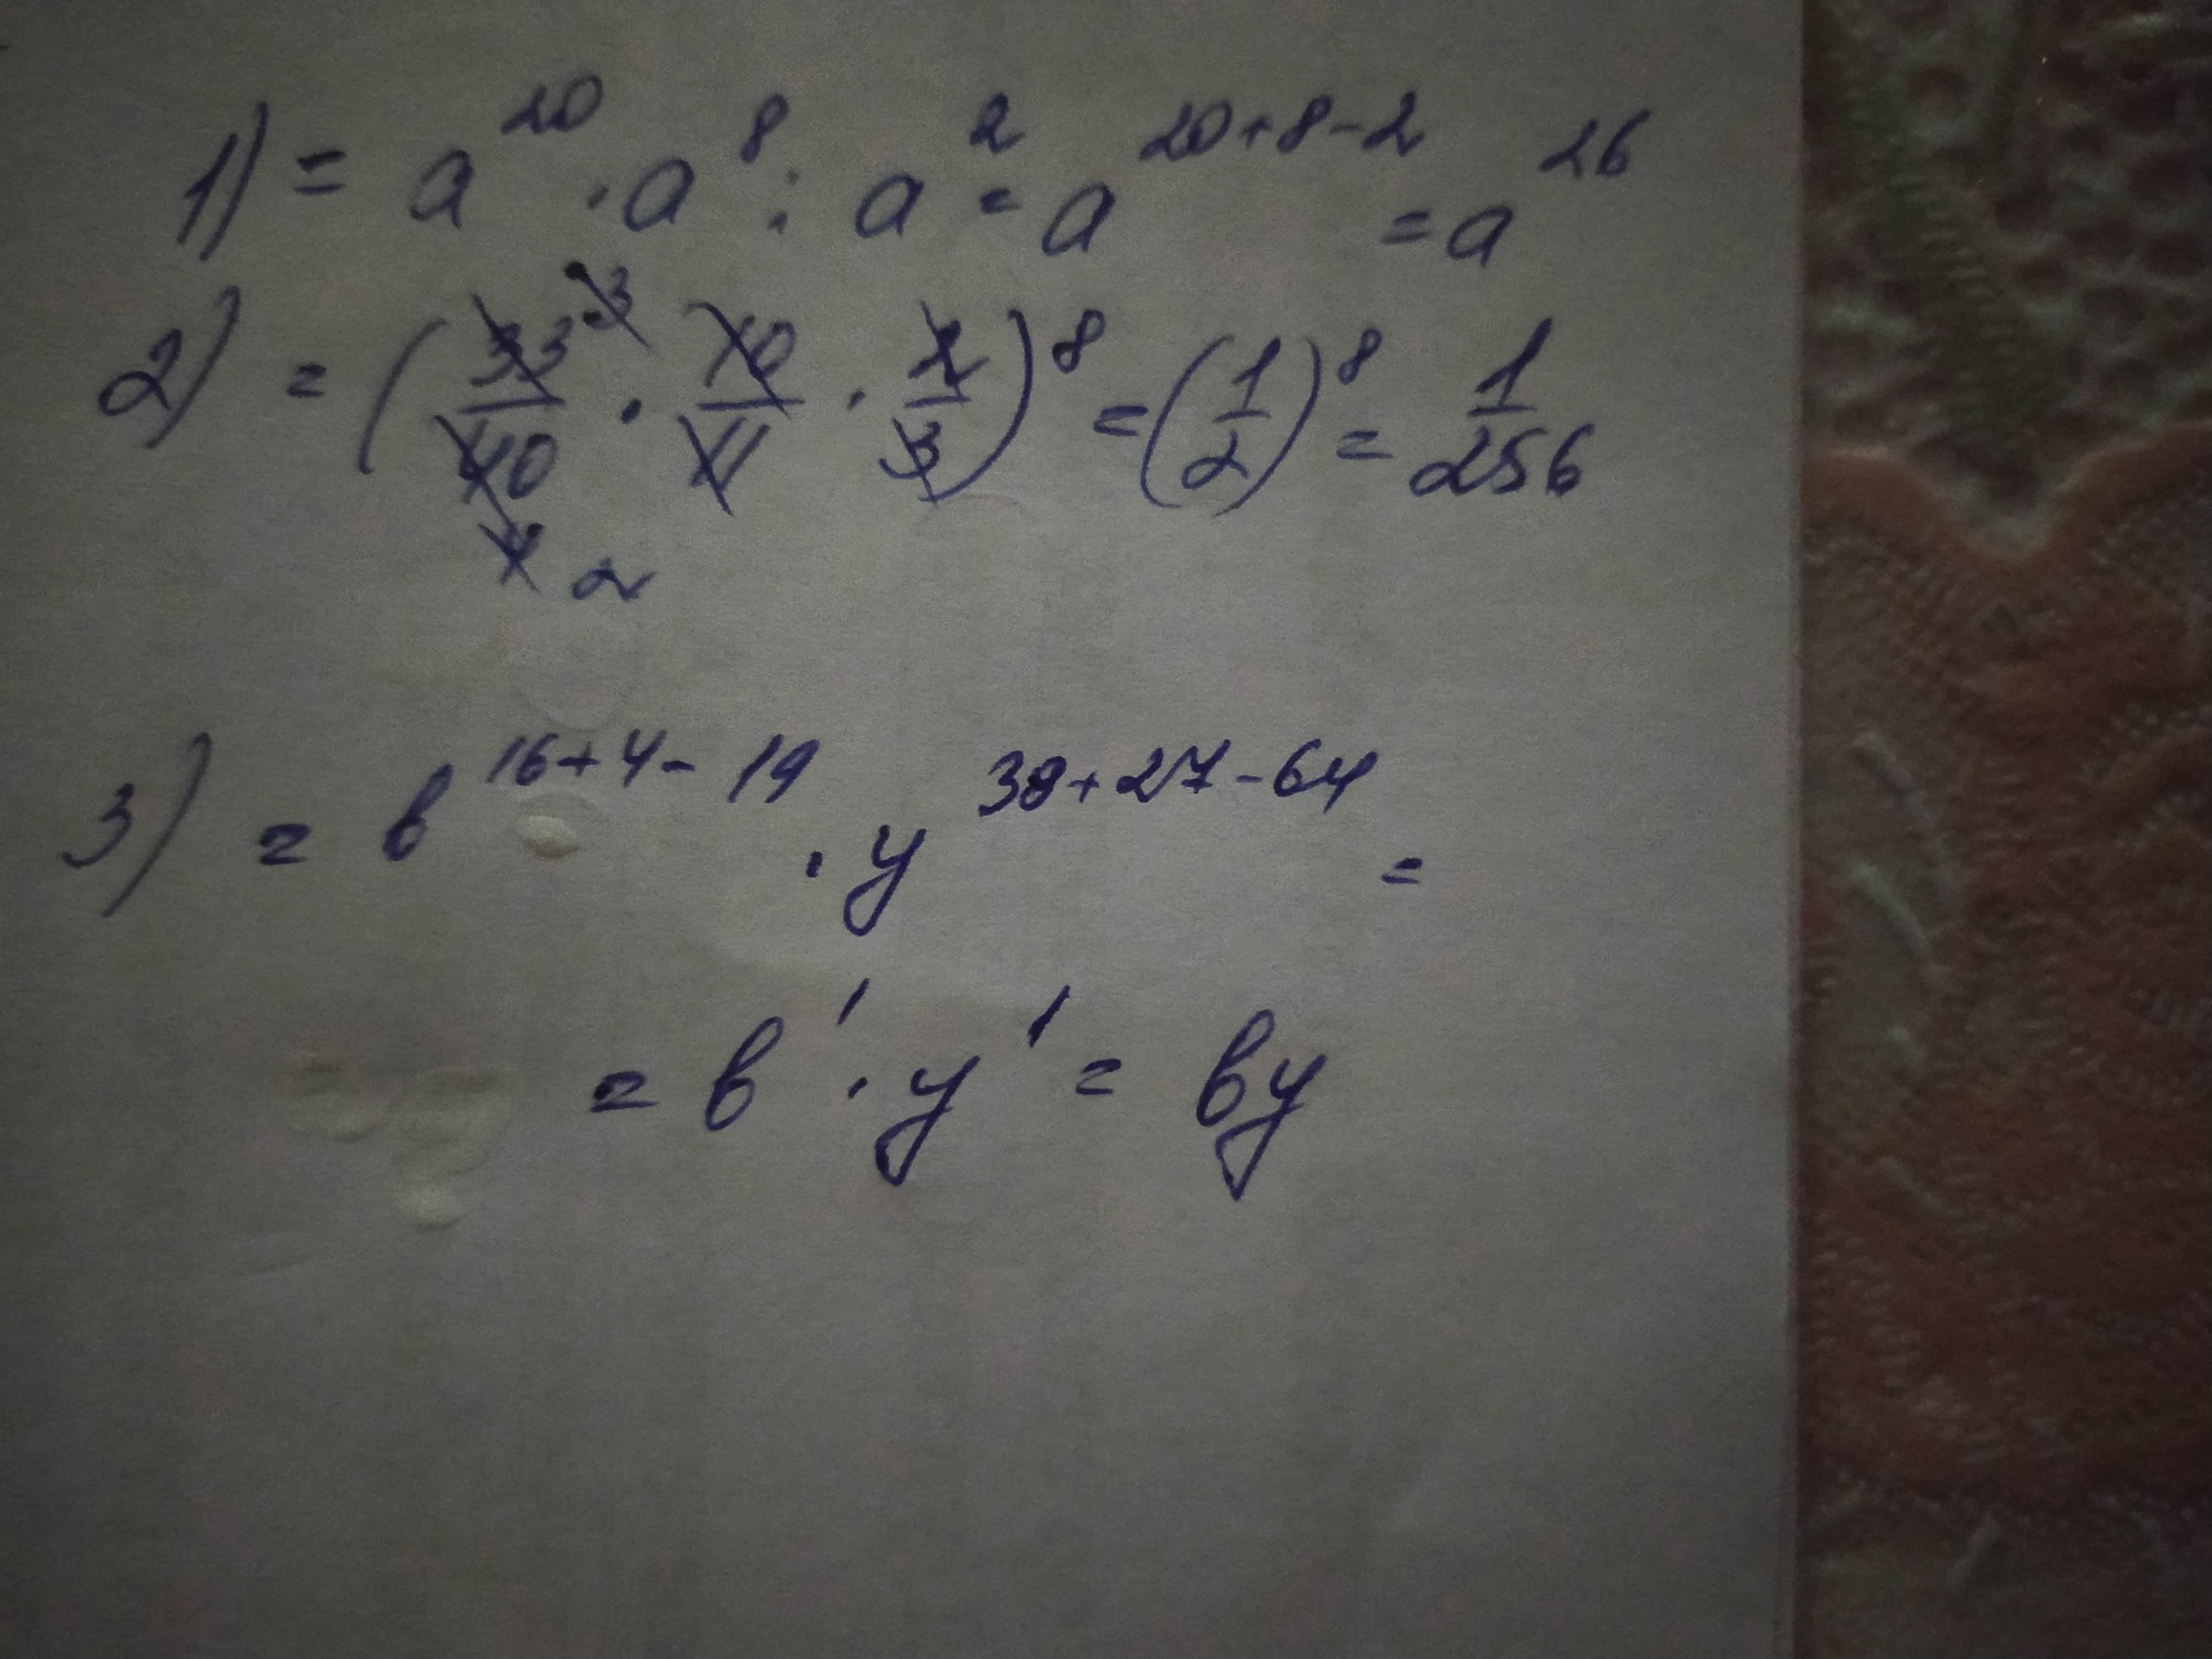 1) = a^20 · a^8 : a^2 = a^(20+8-2) = a^26
2) = (33^3/40 · 10/11 · 2/3)^8 = (1/2)^8 = 1/256
4 2
3) = b^(16+4-19) · y^(38+27-64) =
= b^1 · y^1 = by